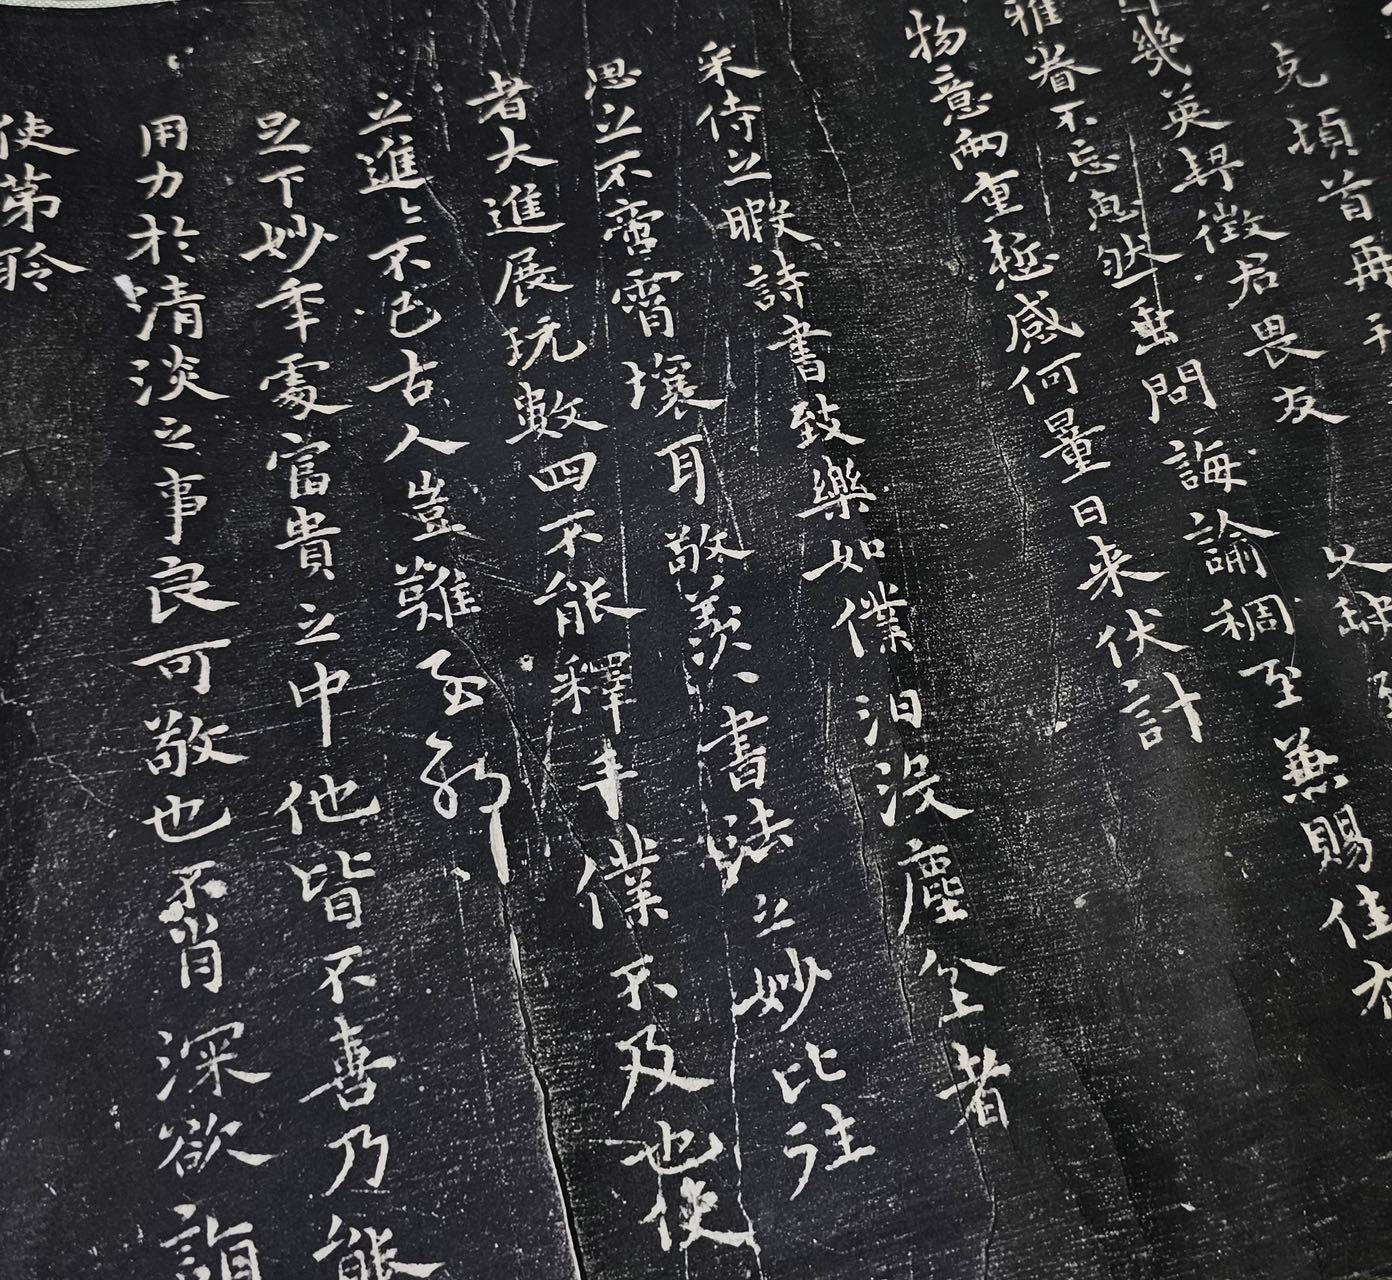 克頓首再
幾英契徵君畏友
雅眷不忘惠然垂問誨諭稠至兼賜佳
物意兩重慙感何量日来伏計
采侍之暇詩書致樂如僕汩没塵坌者
思之不啻霄壤耳敬羨書法之妙比往
者大進展玩數四不能釋手僕不及也使
之進進不已古人豈難至耶
足下妙年處富貴之中他皆不喜乃能
用力於清淡之事良可敬也不肖深欲詣
使第聆